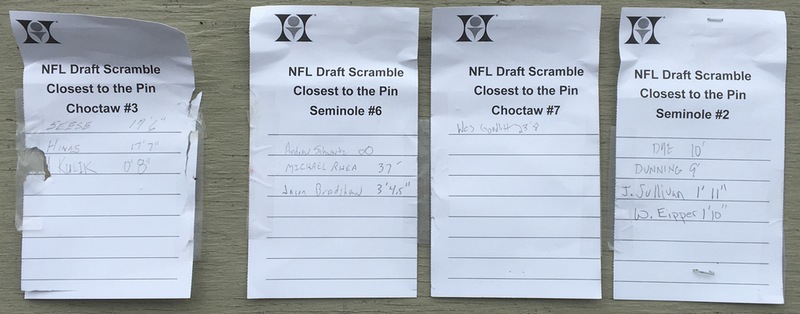 NFL Draft Scramble
Closest to the Pin
Choctaw #3
SEESE 19'6"
HINAS 17'7"
KULIK 0'8"
NFL Draft Scramble
Closest to the Pin
Seminole #6
Andrew Schwartz ∞
MICHAEL RHEA 37'
Jason Bradshaw 3'4.5"
NFL Draft Scramble
Closest to the Pin
Choctaw #7
Wes 23'8
NFL Draft Scramble
Closest to the Pin
Seminole #2
10'
DUNNING 9'
J. Sullivan 1'11"
W. Eipper 1'10"